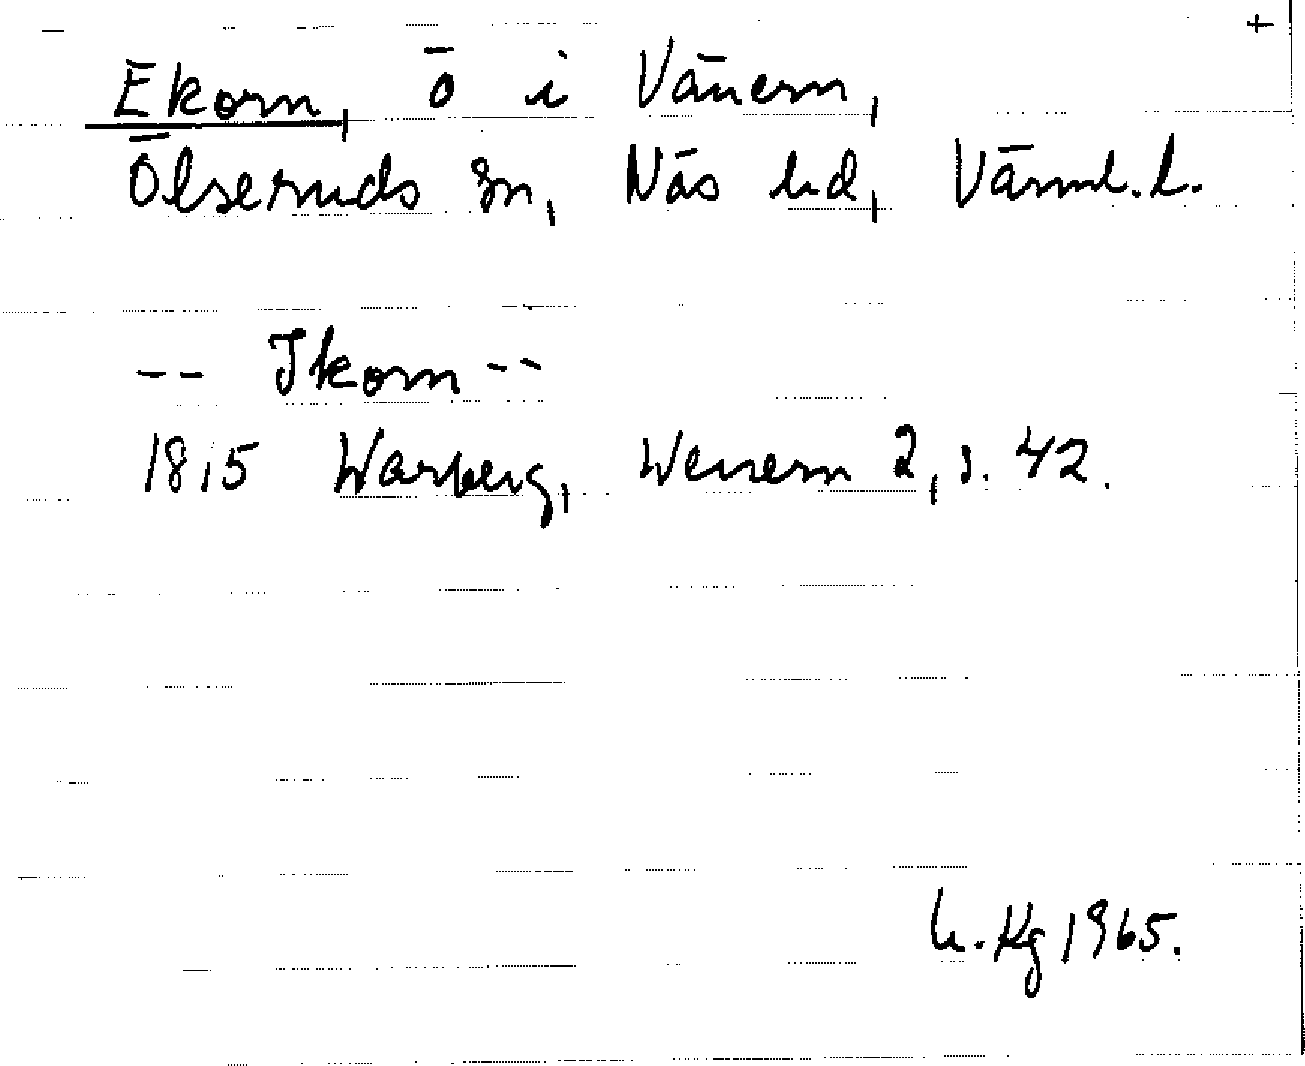 +
Ekorn, ö i Vänern,
Ölseruds sn, Näs hd, Värml. l.
-- Ikorn --
1815 Warberg, Wenern 2, s. 42.
h. Kg 1965.